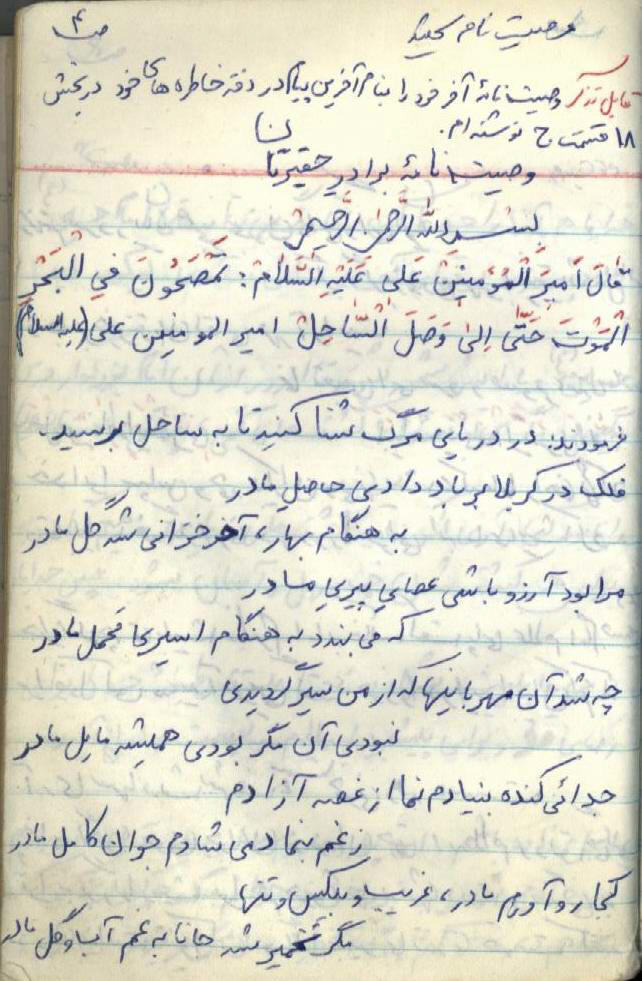 ص ۴
وصیت نامه سعید
قابل تذکر وصیت نامهٔ آخر خود را بنام آفرین پیام در دفتر خاطره های خود در بخش
۱۸ قسمت ج نوشته ام.
وصیت نامهٔ برادر حقیرتان
بسم الله الرحمن الرحیم
قالَ اَمیرَ الْمُؤمِنینْ عَلی عَلَیهِ السَّلامْ: تَمْصَحُونَ فِي الْبَحْرِ
الْمَوْتَ حَتّی اِلیٰ وَصَلَ السّاحِلْ امیر المومنین علی (علیه السلام)
فرمودند: در دریایی مرگ شنا کنید تا به ساحل برسید.
فلک در کربلا بر باد دادی حاصل مادر
به هنگام بهار، آخر خزانی شد گل مادر
مرا بود آرزو باشی عصایی پیری مادر
که می بندد به هنگام اسیری محمل مادر
چه شد آن مهربانیها که از من سیر گردیدی
نبودی آن مگر بودی همیشه مایل مادر
جدائی کنده بنیادم نما از غصه آزادم
ز غم بنمادمی شادم جوان کامل مادر
کجا رو آورم مادر، غریب و بیکس و تنها
مگر تخمیر شد جانا به غم آب و گل مادر